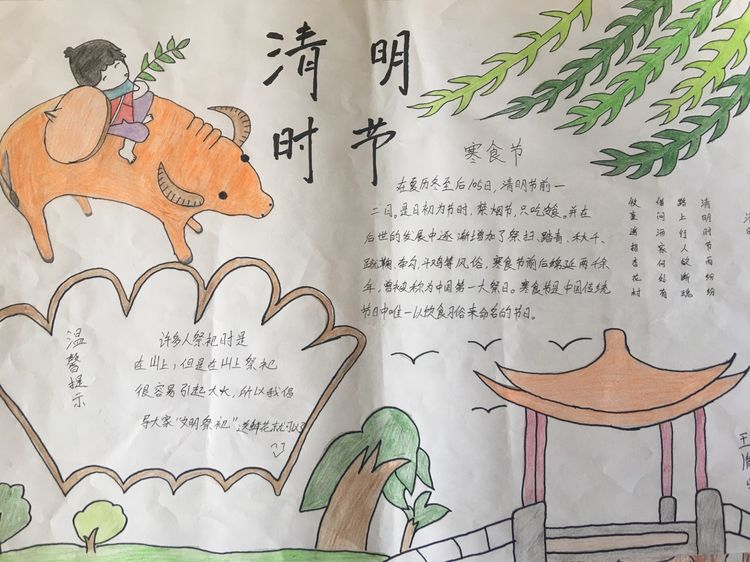 清明
时节
寒食节
在夏历冬至后105日，清明节前一
二日。是日初为节时，禁烟节，只吃冷食。并在
后世的发展中逐渐增加了祭扫、踏青、秋千、
蹴鞠、牵勾、斗鸡等风俗，寒食节前后绵延两千余
年，曾被称为中国第一大祭日。寒食节是中国传统
节日中唯一以饮食习俗来命名的节日。
清明时节雨纷纷
路上行人欲断魂
借问酒家何处有
牧童遥指杏花村
温馨提示
许多人祭祀时是
在山上，但是在山上祭祀
很容易引起大火，所以我倡
导大家“文明祭祀”送鲜花就可以了